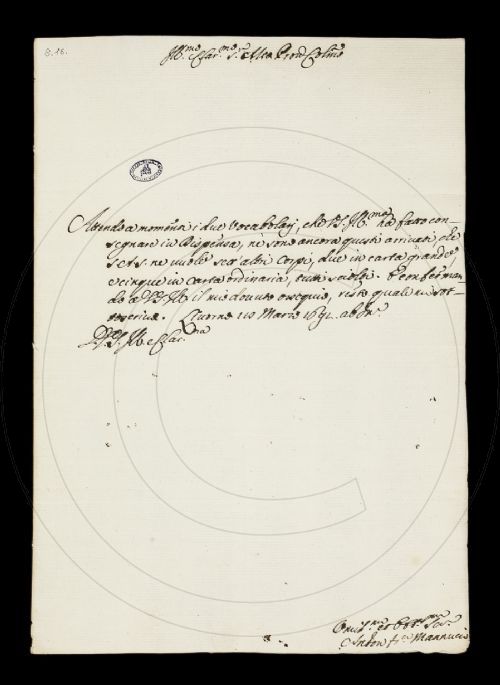 8.16.
Ill.mo e Clar.mo S.r e Pron Colmo
Attendo a momenti i due Vocabolarj, che V.S. Ill.ma ha fatto con-
segnare in Dispensa, ne sono ancora questi arrivati, che
ne vuole altri Corpi, due in carta grande,
e cinque in carta ordinaria, tutti sciolti. E confermando
do a V.S. Ill. il mio dovuto ossequio, resto quale mi sot-
toscrivo. Livorno 10 Marzo 1691. ab Inc.
D.V.S. Ill. e Clar.ma
Devot.mo et Obb.mo Ser.
Anton Fr.co Mannucci